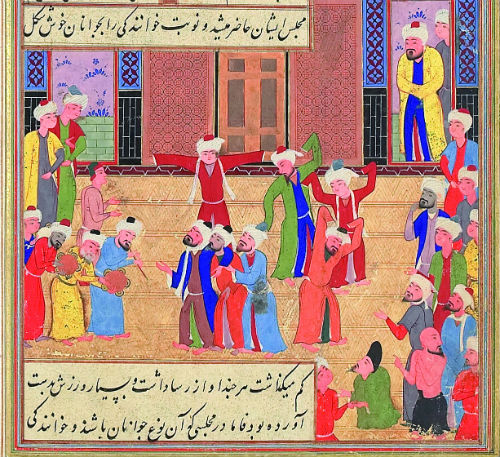 مجلس ایشان حاضر میشد و نوبت خوانندگی را بجوانان خوش شکل
کم میگذاشت هر چند او از رسا داشت و بسیار ورزش بدست
آورده بود فاما در مجلسی که آن نوع جوانان باشند و خوانندگی